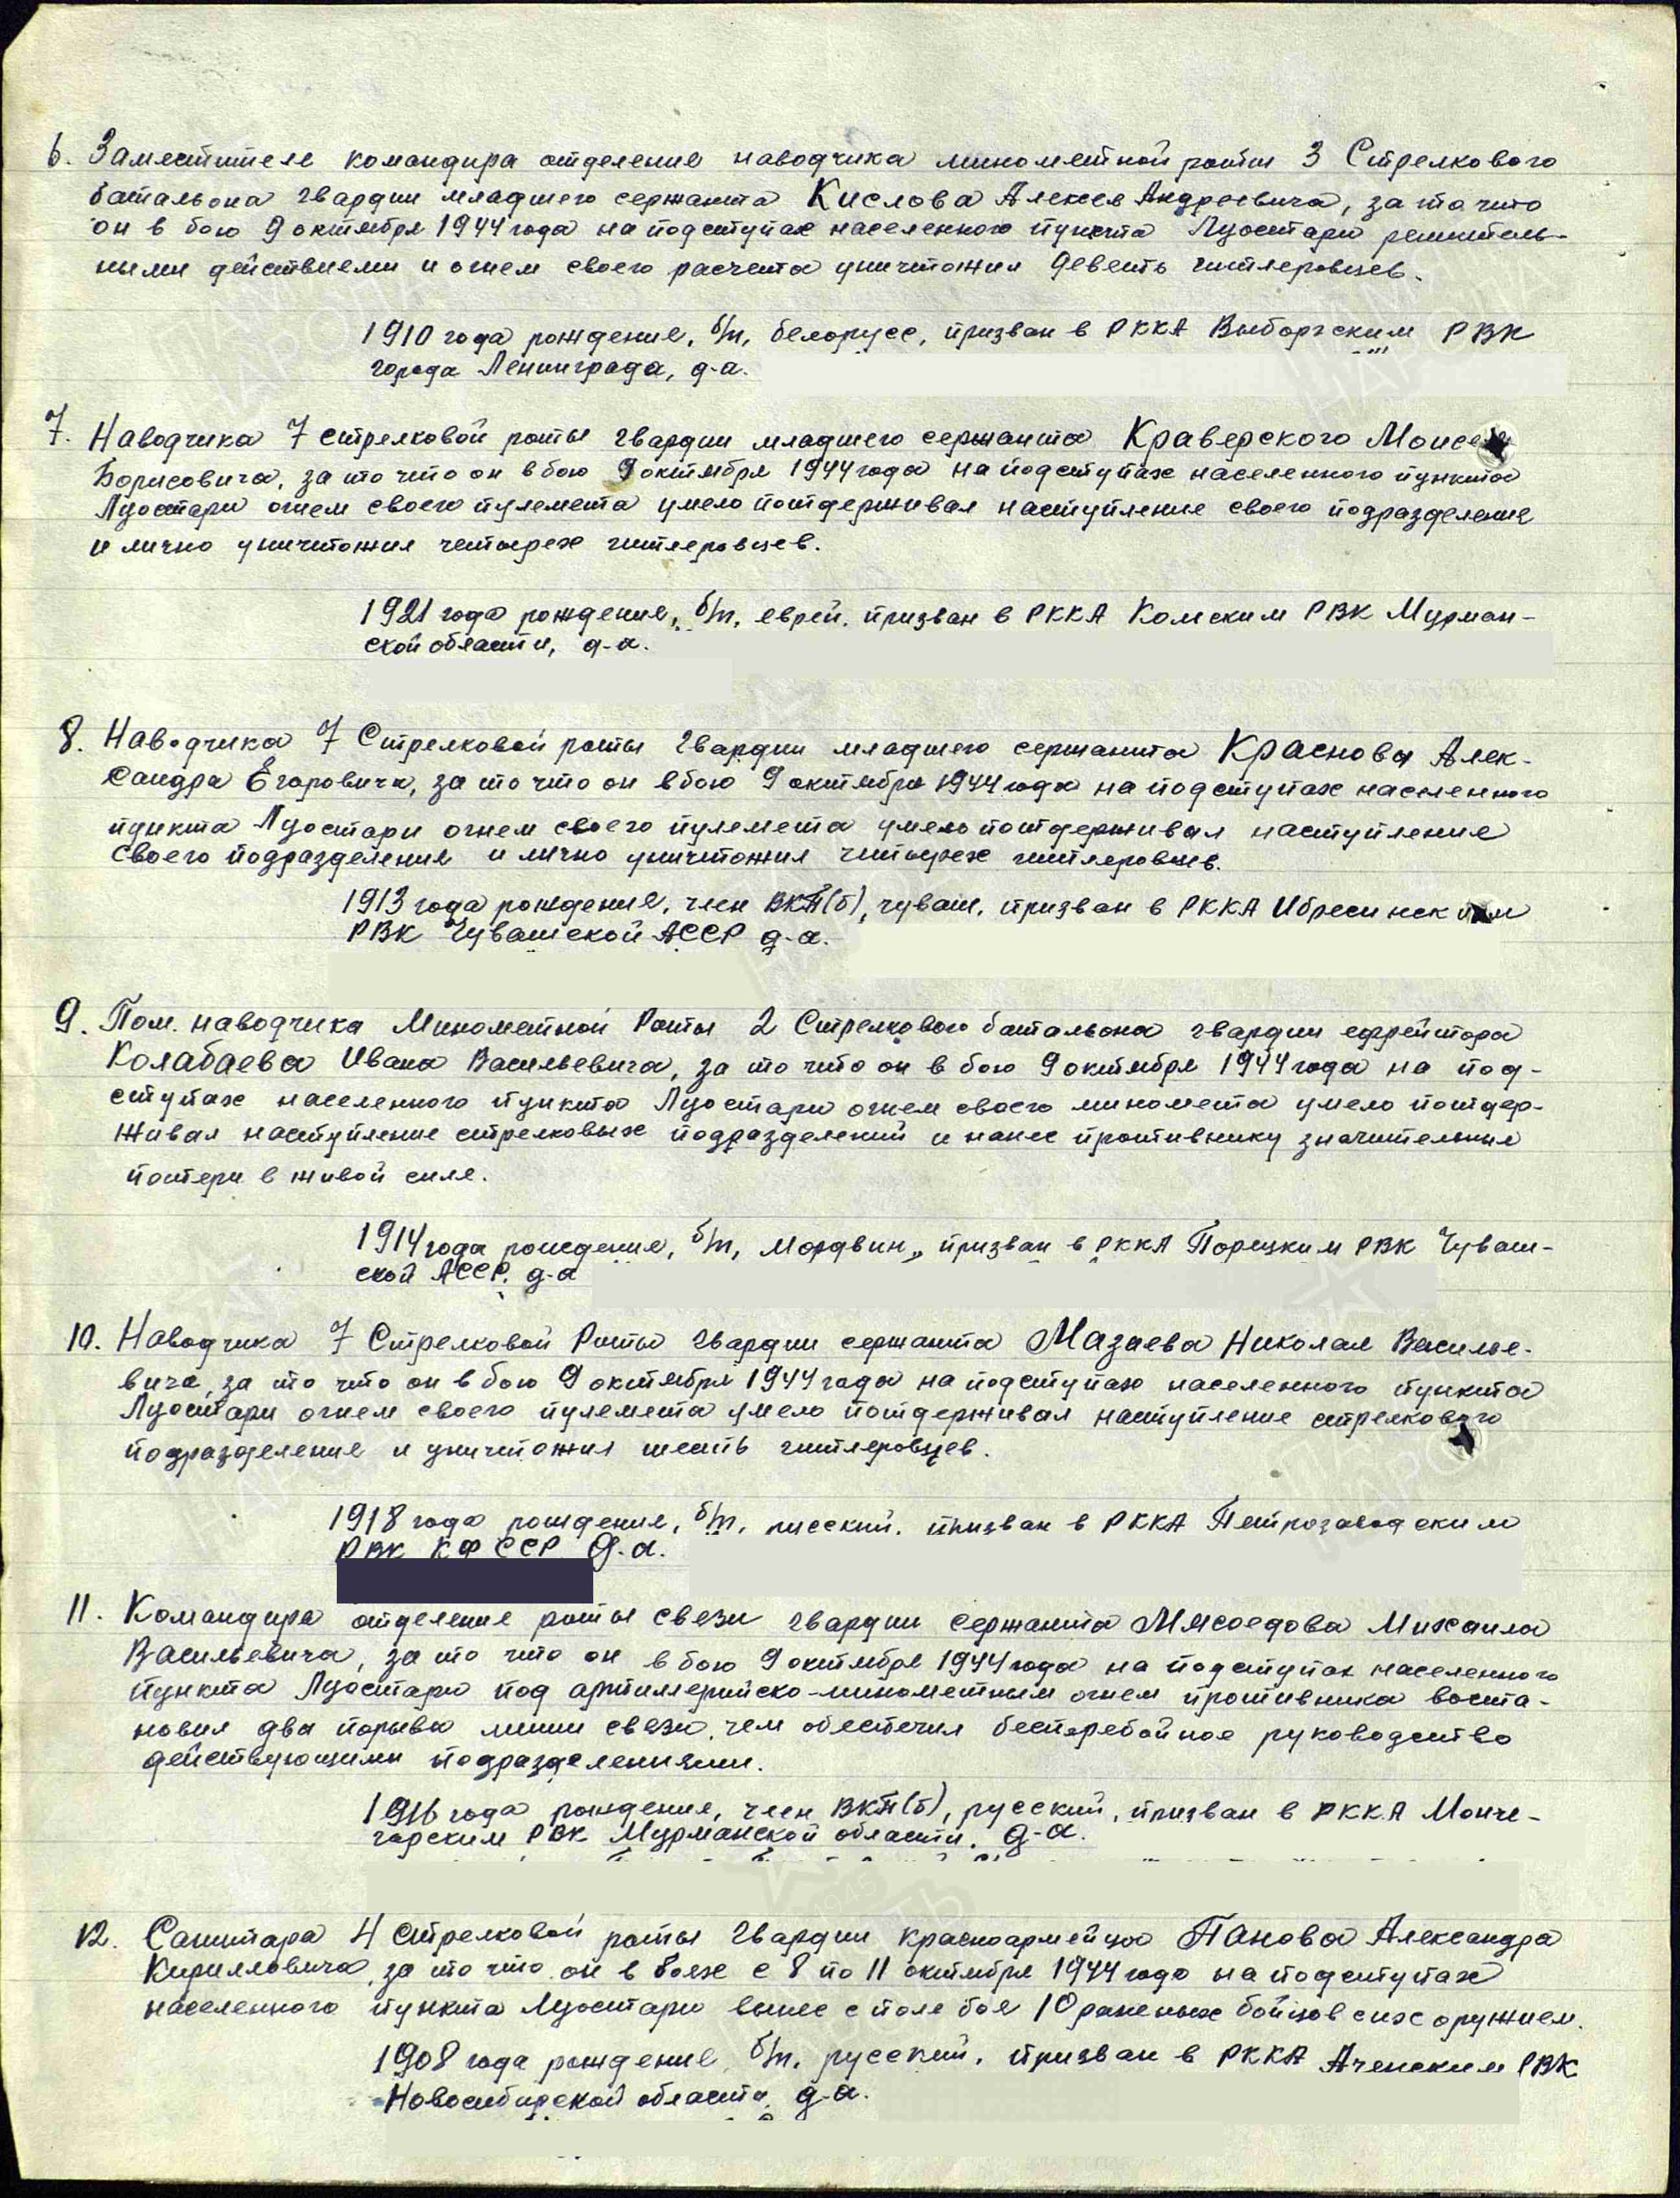 6. Заместителе командира отделение наводчика минометной роты 3 Стрелкового
батальона гвардии младшего сержанта Кислова Алексея Андреевича, за то что
он в бою 9 октября 1944 года на подступах населенного пункта Луостари решитель-
ными действиеми и огнем своего расчета уничтожил девеить гитлеровцев.
1910 года рождение, б/п, белорусс, призван в РККА Выборгским РВК
города Ленинграда, д-а.
7. Наводчика 7 стрелковой роты гвардии младшего сержанта Краверского Моисея
Борисовича, за то что он в бою 9 октября 1944 года на подступах населенного пункта
Луостари огнем своего пулемета умело поддерживал наступление своего подразделение
и лично уничтожил четырех гитлеровцев.
1921 года рождение, б/п, еврей. призван в РККА Кольским РВК Мурман-
ской области, д-а.
8. Наводчика 7 Стрелковой роты гвардии младшего сержанта Краснова Алек-
сандра Егоровича, за то что он в бою 9 октября 1944 года на подступах населенного
пункта Луостари огнем своего пулемета умело поддерживал наступление
своего подразделения и лично уничтожил четырех гитлеровцев.
1913 года рождение, член ВКП(б), чуваш, призван в РККА Ибресинским
РВК Чувашской АССР д-а.
9. Пом. наводчика Минометной Роты 2 Стрелкового батальона гвардии ефрейтора
Колабаева Ивана Васильевича, за то что он в бою 9 октября 1944 года на под-
ступах населенного пункта Луостари огнем своего миномета умело поддер-
живал наступление стрелковых подразделений и нанес противнику значительные
потери в живой силе.
1914 года рождение, б/п, Мордвин, призван в РККА Порецким РВК Чуваш-
ской АССР, д-а
10. Наводчика 7 Стрелковой Роты гвардии сержанта Мазаева Николая Василье-
вича, за то что он в бою 9 октября 1944 года на подступах населенного пункта
Луостари огнем своего пулемета умело поддерживал наступление стрелкового
подразделение и уничтожил шесть гитлеровцев.
1918 года рождение, б/п, русский. призван в РККА Петрозаводским
РВК КФССР д-а.
11. Командира отделение роты связи гвардии сержанта Мясоедова Михаила
Васильевича, за то что он в бою 9 октября 1944 года на подступах населенного
пункта Луостари под артиллерийско-минометным огнем противника восста-
новил два порыва линии связи, чем обеспечил бесперебойное руководство
действующими подразделениями.
1916 года рождение, член ВКП(б), русский, призван в РККА Монче-
горским РВК Мурманской области. д-а.
12. Санитара 4 стрелковой роты гвардии красноармейца Панова Александра
Кирилловича, за то что он в боях с 8 по 11 октября 1944 года на подступах
населенного пункта Луостари вынес с поле боя 10 раненых бойцов с их оружием.
1908 года рождение, б/п, русский, призван в РККА Аченским РВК
Новосибирской области, д-а.